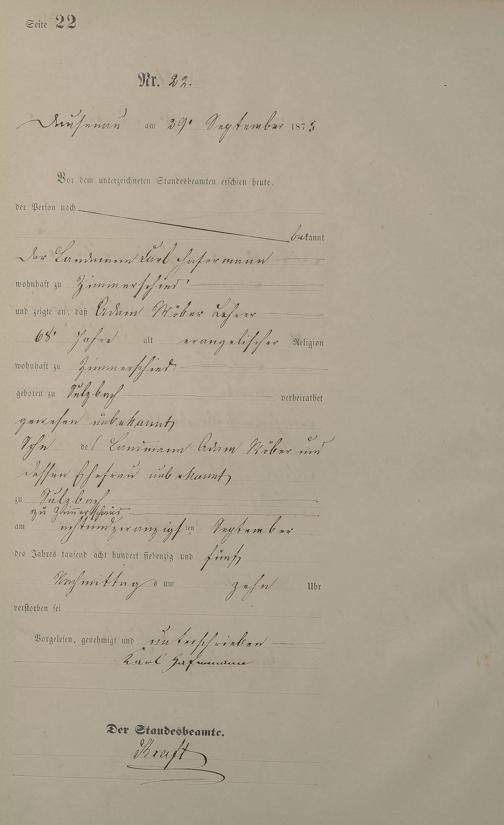 Seite 22
Nr. 22.
Dausenau am 29. September 1875
Vor dem unterzeichneten Standesbeamten erschien heute,
der Person nach
bekannt
der Landmann Karl Hafermann
wohnhaft zu Zimmerschied
und zeigte an, daß Adam Wöber Lehrer
68 Jahre alt evangelischer Religion
wohnhaft zu Zimmerschied
geboren zu Sulzbach verheirathet
gewesen unbekannt
Sohn des Landmann Adam Wöber und
dessen Ehefrau unbekannt
zu Sulzbach
zu Zimmerschied
am achtundzwanzigsten September
des Jahres tausend acht hundert siebenzig und fünf
Nachmittags um zehn Uhr
verstorben sei
Vorgelesen, genehmigt und unterschrieben
Karl Hafermann
Der Standesbeamte.
Kraft